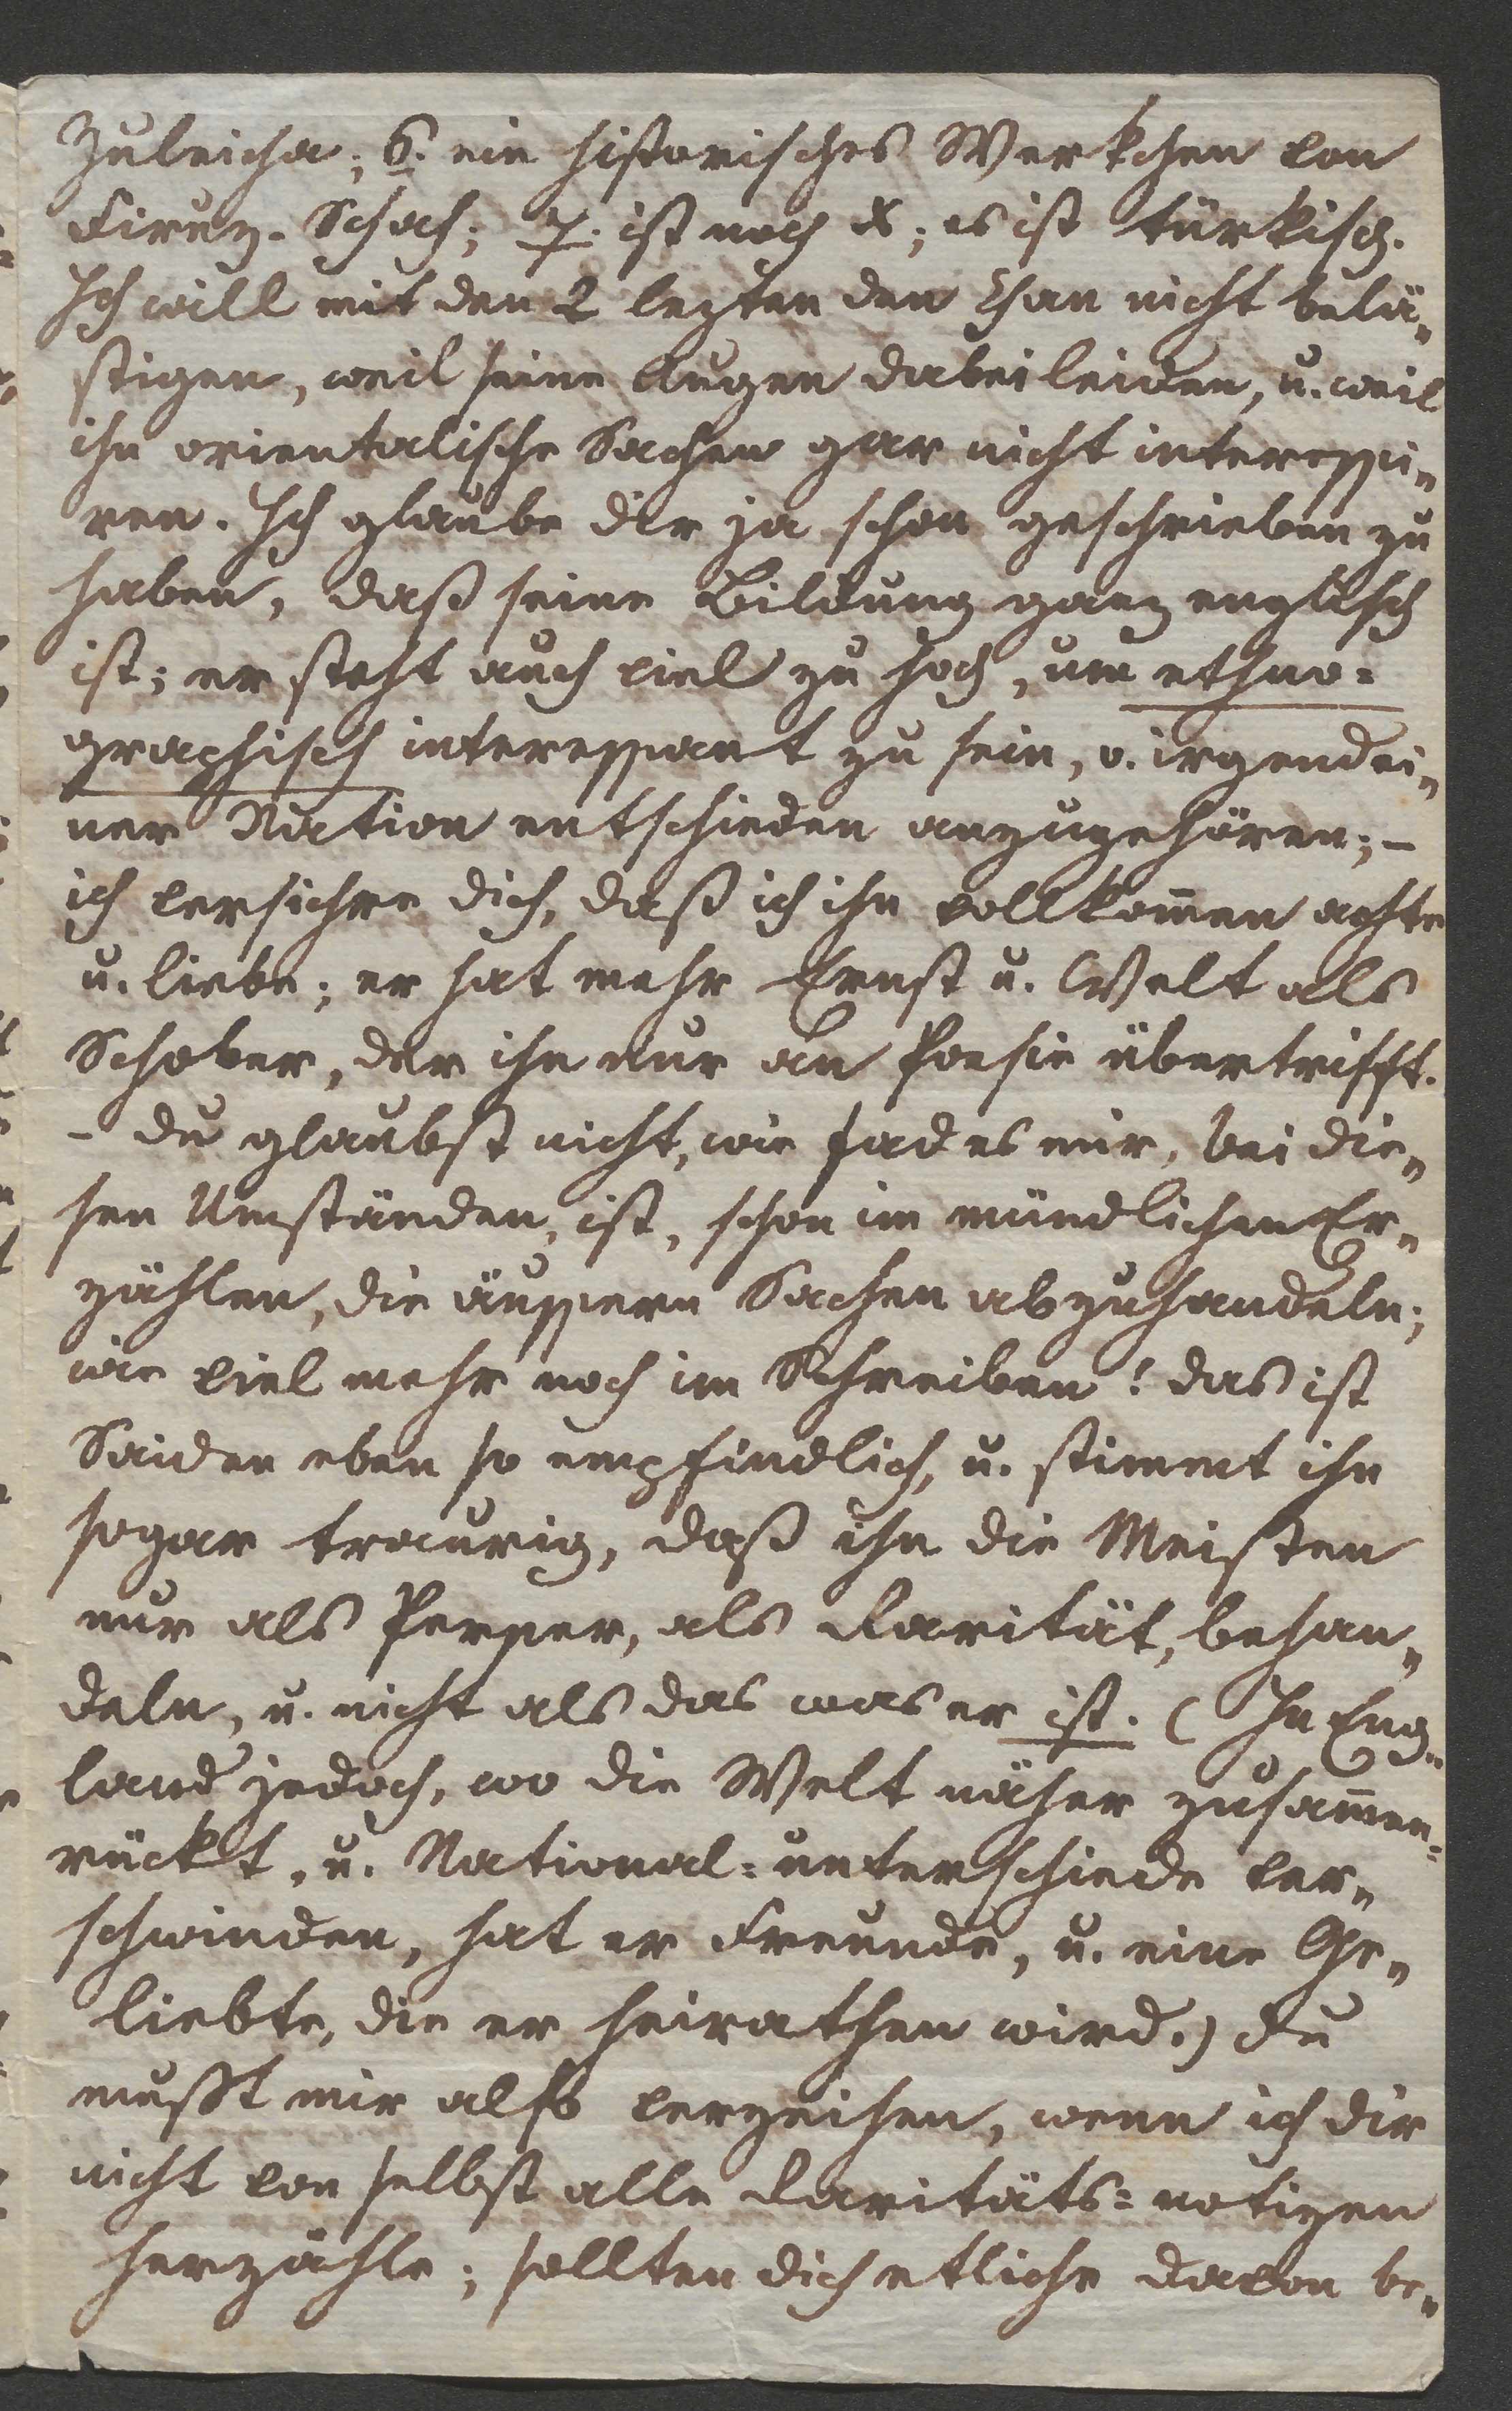 Zuleicha; 6. ein historisches Werkchen von
Firuz-Schach; 7. ist noch X; es ist türkisch.
Ich will mit den 2 lezten den Chan nicht belä„
stigen, weil seine Augen dabei leiden, u. weil
ihn orientalische Sachen gar nicht interessi„
ren. Ich glaube dir ja schon geschrieben zu
haben, daß seine Bildung ganz englisch
ist; er steht auch viel zu hoch, um ethno=
graphisch interessant zu sein, o. irgendei„
ner Nation entschieden anzugehören; –
ich versichre dich, daß ich ihn vollkom̅en achte
u. liebe; er hat mehr Ernst u. Welt als
Schober, der ihn nur an Poesie übertrifft.
– du glaubst nicht, wie fad es mir, bei die„
sen Umständen, ist, schon im mündlichen Er„
zählen, die äussern Sachen abzuhandeln;
wie viel mehr noch im Schreiben! das ist
Saiden eben so empfindlich, u. stimmt ihn
sogar traurig, daß ihn die Meisten
nur als Perser, als Rarität, behan„
deln, u. nicht als das was er ist. (In Eng„
land jedoch, wo die Welt näher zusam̅en=
rückt, u. National=unterschiede ver„
schwinden, hat er Freunde, u. eine Ge„
liebte, die er heirathen wird.) du
musst mir also verzeihen, wenn ich dir
nicht von selbst alle Raritäts=notizen
herzähle; sollten dich etliche davon be„